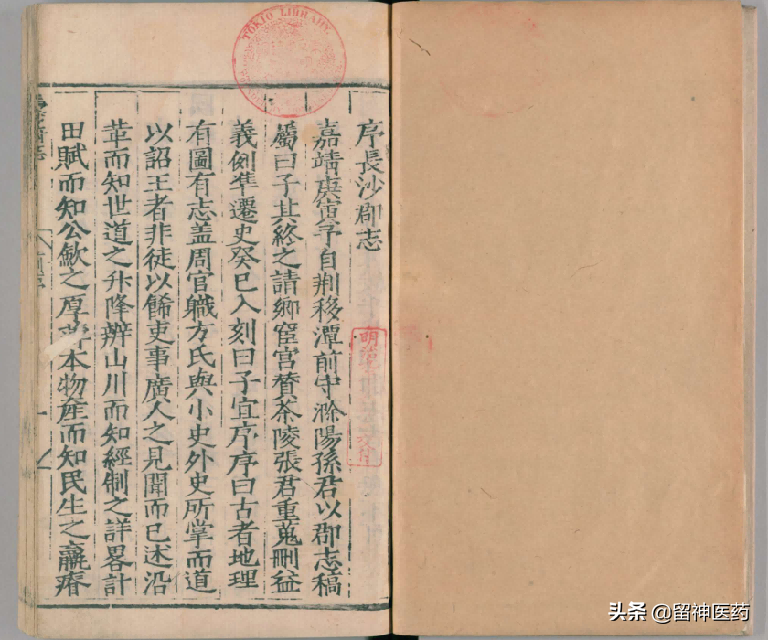 序長沙郡志
嘉靖庚寅予自荆移潭前守滁陽孫君以郡志稿
屬曰子其終之請鄉宦宫賛茶陵張君重蒐刪益
義例凖遷史癸巳入刻曰子宜序序曰古者地理
有圖有志盖周官職方氏與小史外史所掌而道
以詔王者非徒以餙吏事廣人之見聞而已述沿
革而知世道之升降辨山川而知經制之詳畧計
田賦而知公歛之厚薄本物産而知民生之羸瘠
TOKIO LIBRARY
头条 @留神医药